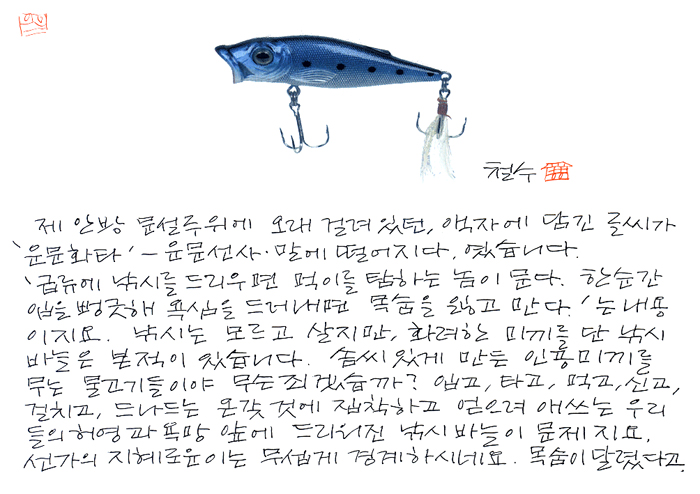 철수
제 안방 문설주위에 오래 걸려있던, 액자에 담긴 글씨가
'운문화타' – 운문선사·말에 떨어지다, 였습니다.
'급류에 낚시를 드리우면 먹이를 탐하는 놈이 문다. 한순간
입을 벙긋해 욕심을 드러내면 목숨을 잃고 만다.'는 내용
이지요. 낚시는 모르고 살지만, 화려한 미끼를 단 낚시
바늘은 본적이 있습니다. 솜씨있게 만든 인공미끼를
무는 물고기들이야 무슨죄겠습니까? 입고, 타고, 먹고, 신고,
걸치고, 드나드는 온갖것에 집착하고 얻으려 애쓰는 우리
들의 허영과 욕망 앞에 드리워진 낚시바늘이 문제지요.
선가의 지혜로운이는 무섭게 경계하시네요. 목숨이 달렸다고.